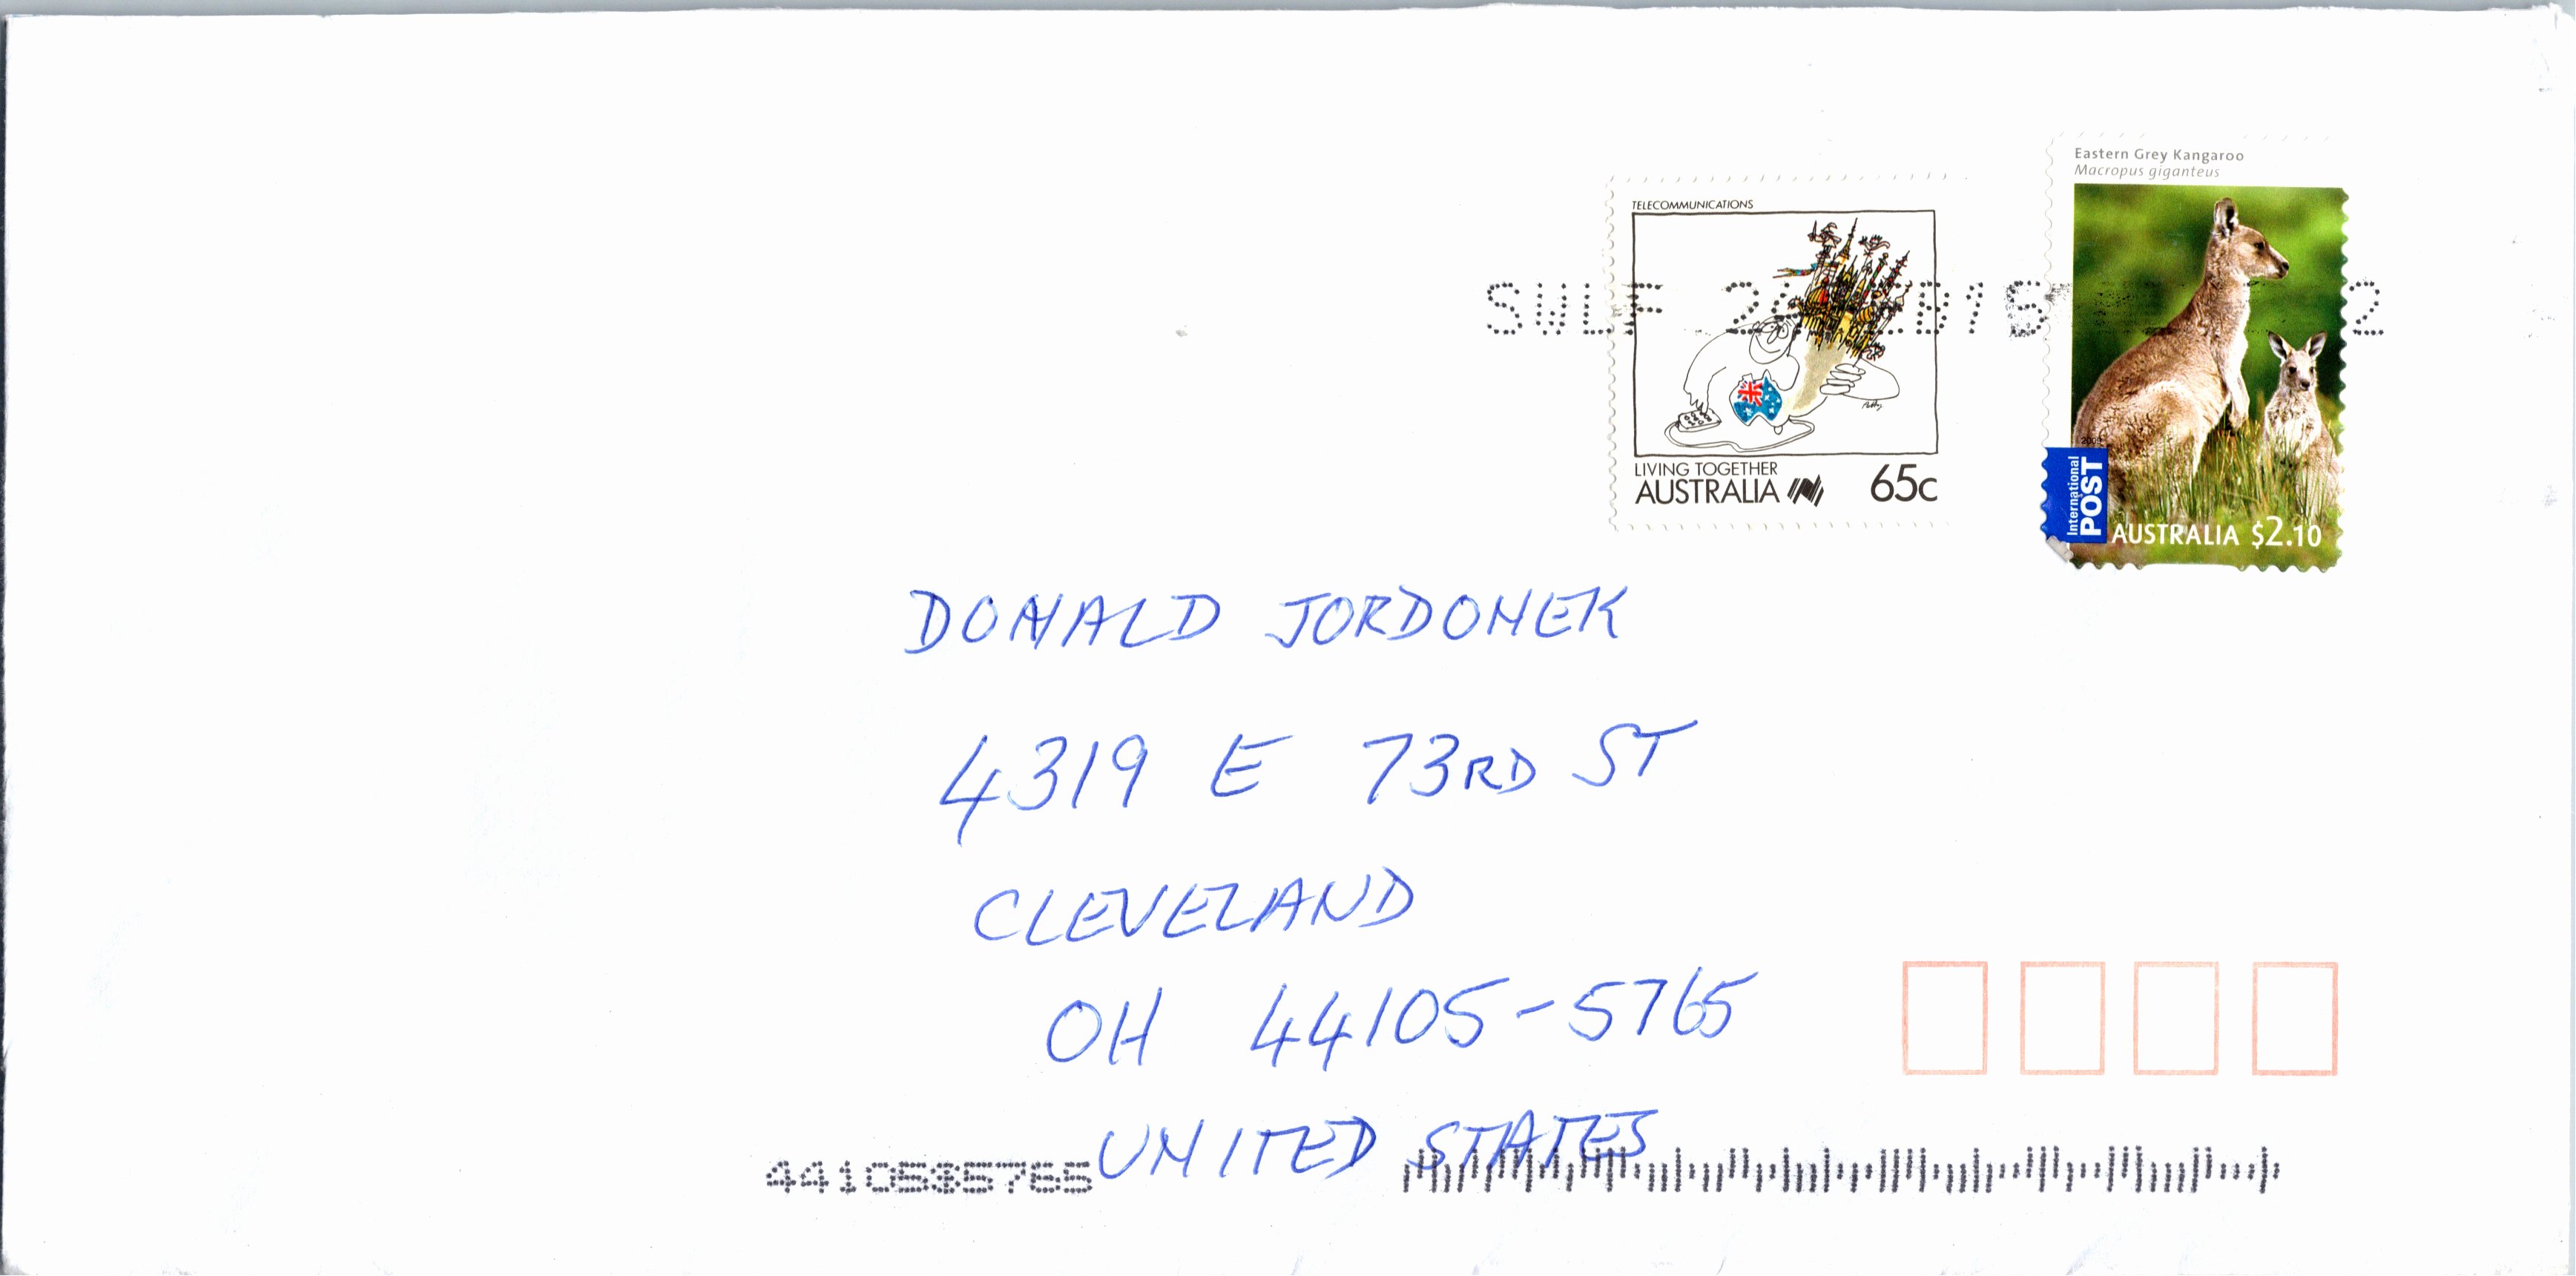 Eastern Grey Kangaroo
Macropus giganteus
TELECOMMUNICATIONS
SWLF
2
LIVING TOGETHER
AUSTRALIA 65c
2009
International
POST
AUSTRALIA $2.10
DONALD JORDONEK
4319 E 73RD ST
CLEVELAND
OH 44105-5765
UNITED STATES
44105$5765